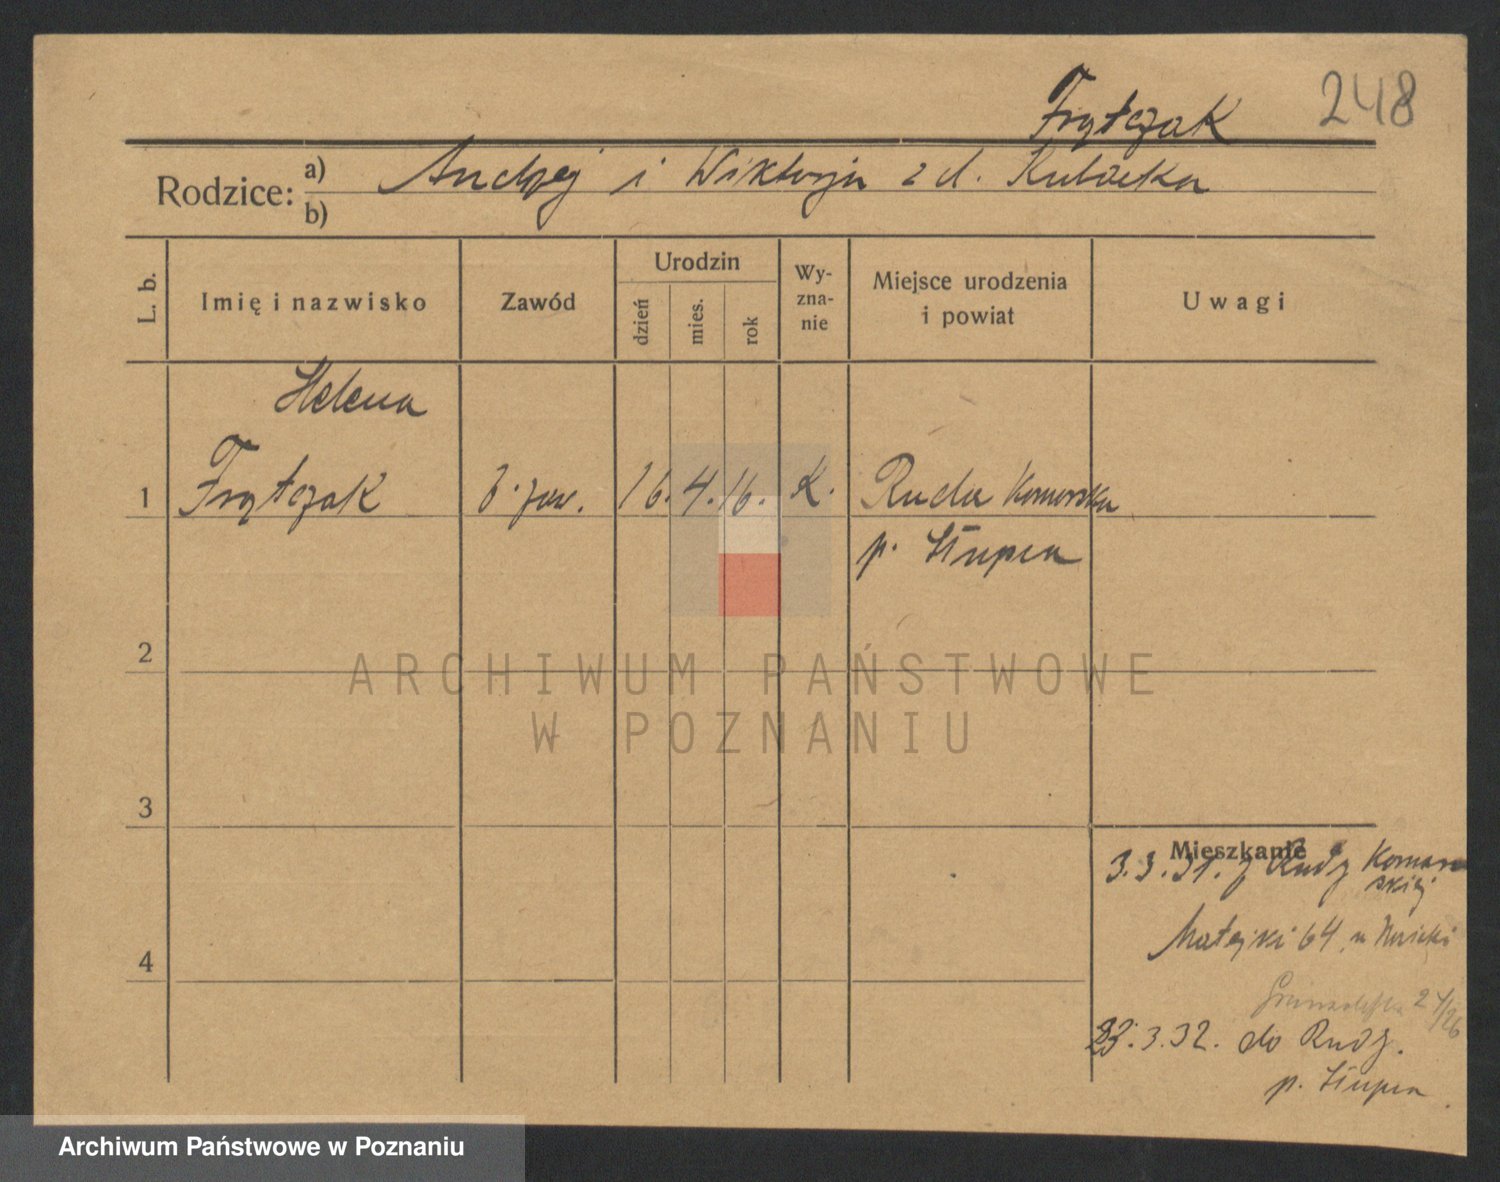 248
Frątczak
Rodzice: a) Andrzej i Wiktorja z d.
b)
L. b.
Imię i nazwisko
Zawód
Urodzin
dzień
mies.
rok
Wy-
zna-
nie
Miejsce urodzenia
i powiat
Uwagi
Helena
1 Frątczak b. zaw. 16. 4. 16. K. Ruda Komorska
p. Słupca
2
ARCHIWUM PAŃSTWOWE
W POZNANIU
3
Mieszkanie
3.3.31. z Rudy Komor
skiej
4
Matejki 64
23.3.32. do Rudy.
p. Słupca
Archiwum Państwowe w Poznaniu